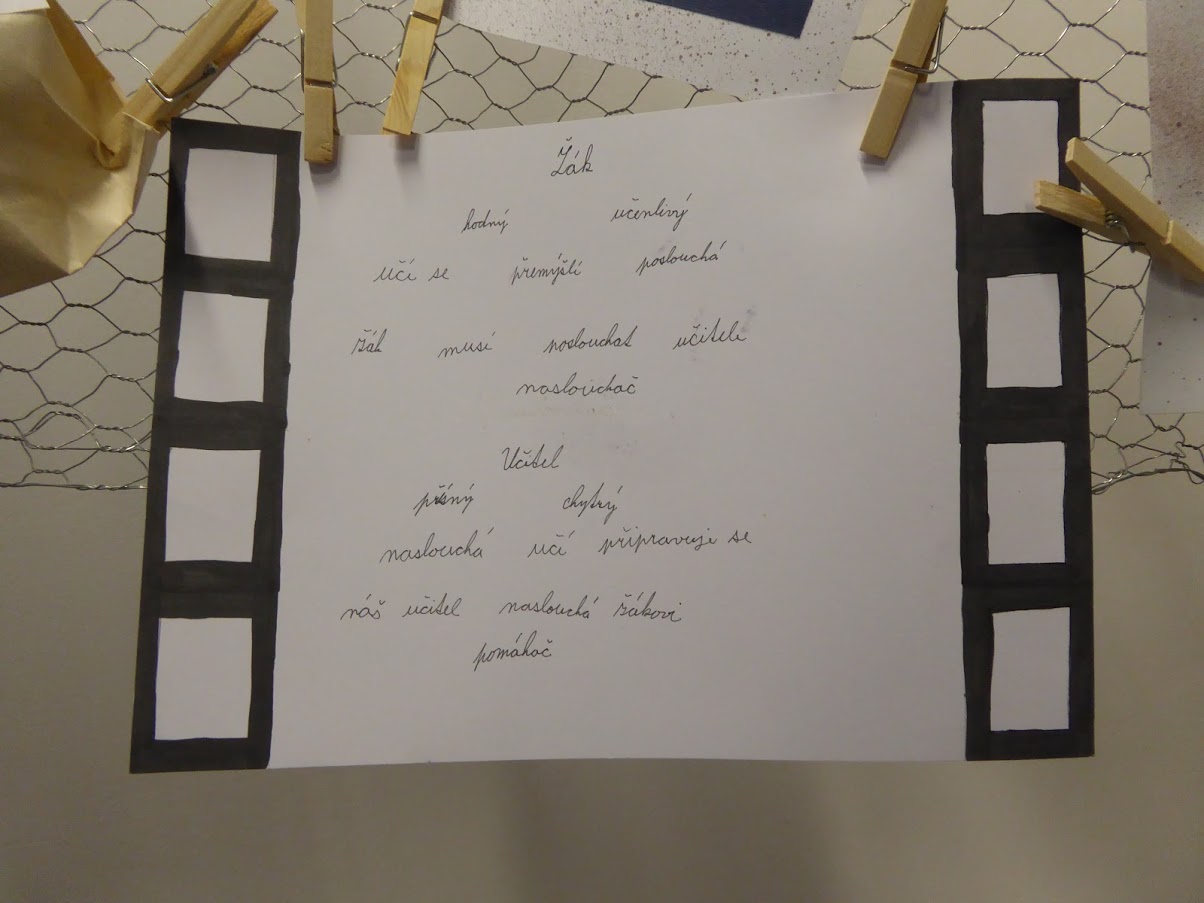 Žák
hodný učenlivý
učí se přemýšlí poslouchá
žák musí poslouchat učitele
naslouchač
Učitel
přísný chytrý
naslouchá učí připravuje se
náš učitel naslouchá žákovi
pomáhač